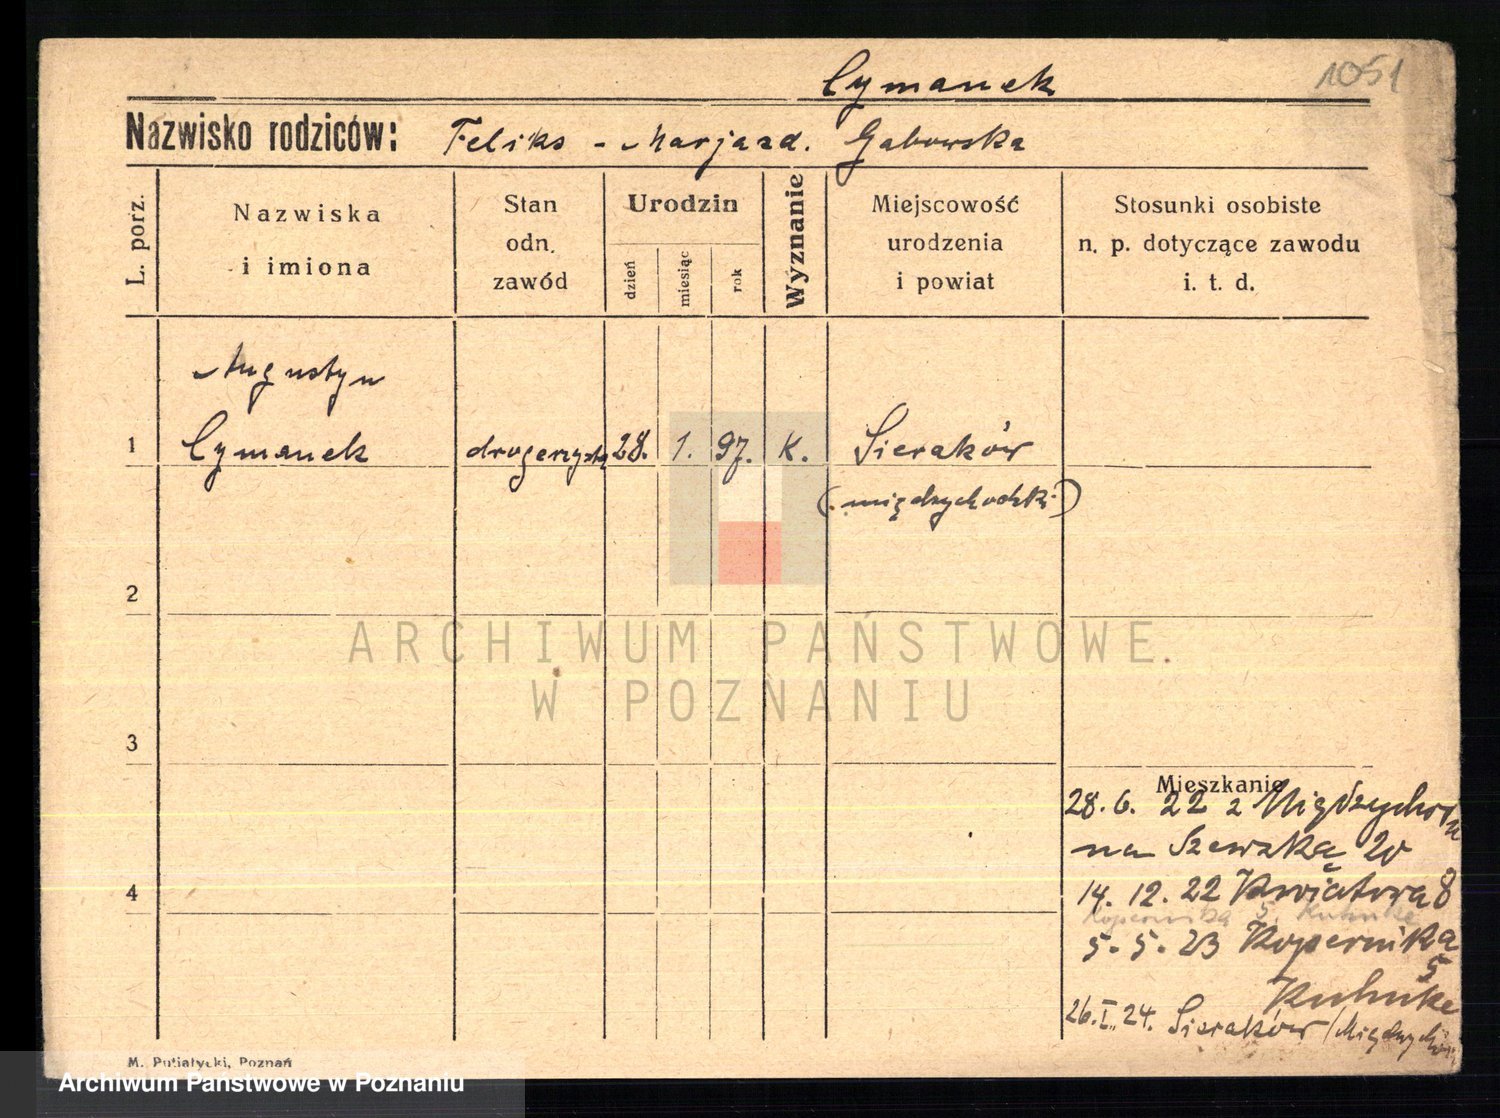 1051
Cymanek
Nazwisko rodziców: Feliks - Marja zd. Gabowska
L. porz.
Nazwiska
i imiona
Stan
odn.
zawód
Urodzin
dzień
miesiąc
rok
Wyznanie
Miejscowość
urodzenia
i powiat
Stosunki osobiste
n. p. dotyczące zawodu
i. t. d.
Augustyn
1 Cymanek drogerzysta 28. 1. 97. K. Sieraków
(międzychodzki)
2
ARCHIWUM PAŃSTWOWE
W POZNANIU
3
Mieszkanie
28. 6. 22 z Międzychodu
na Szewską 20
4
14. 12. 22 Kwiatowa 8
Kopernika 5 Kuhnke
5. 5. 23 Kopernika
5
Kuhnke
26. I. 24. Sieraków /Międzychod
M. Putiatycki, Poznań
Archiwum Państwowe w Poznaniu